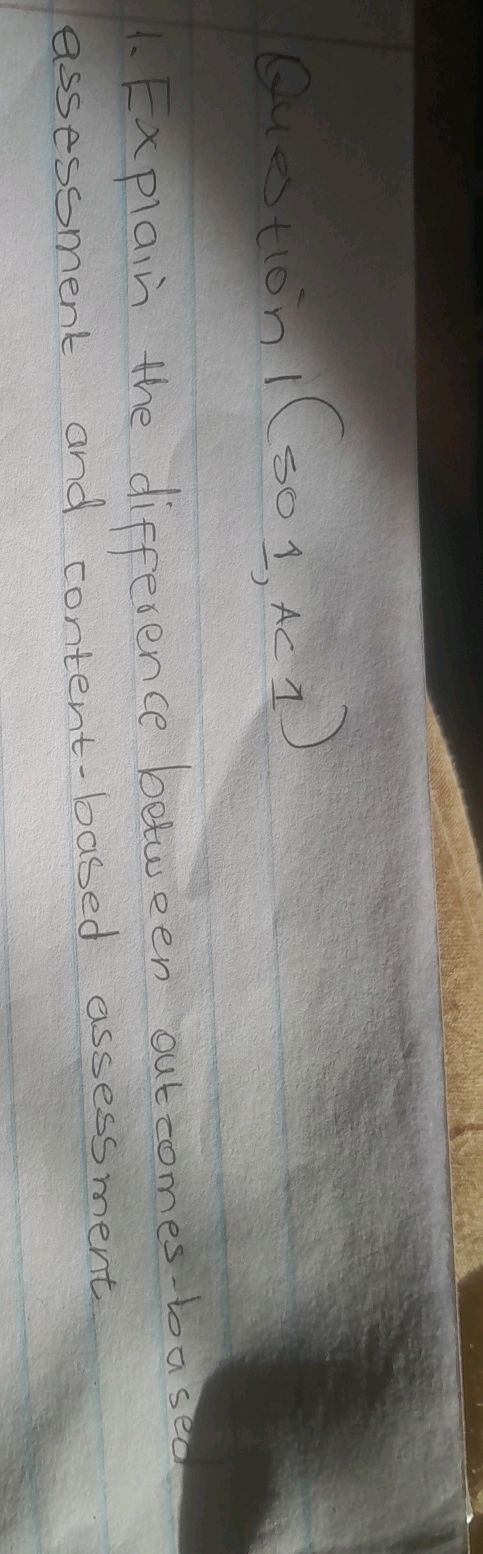 Question 1 (SO 1, AC 1)
1. Explain the difference between outcomes-based
assessment and content-based assessment.